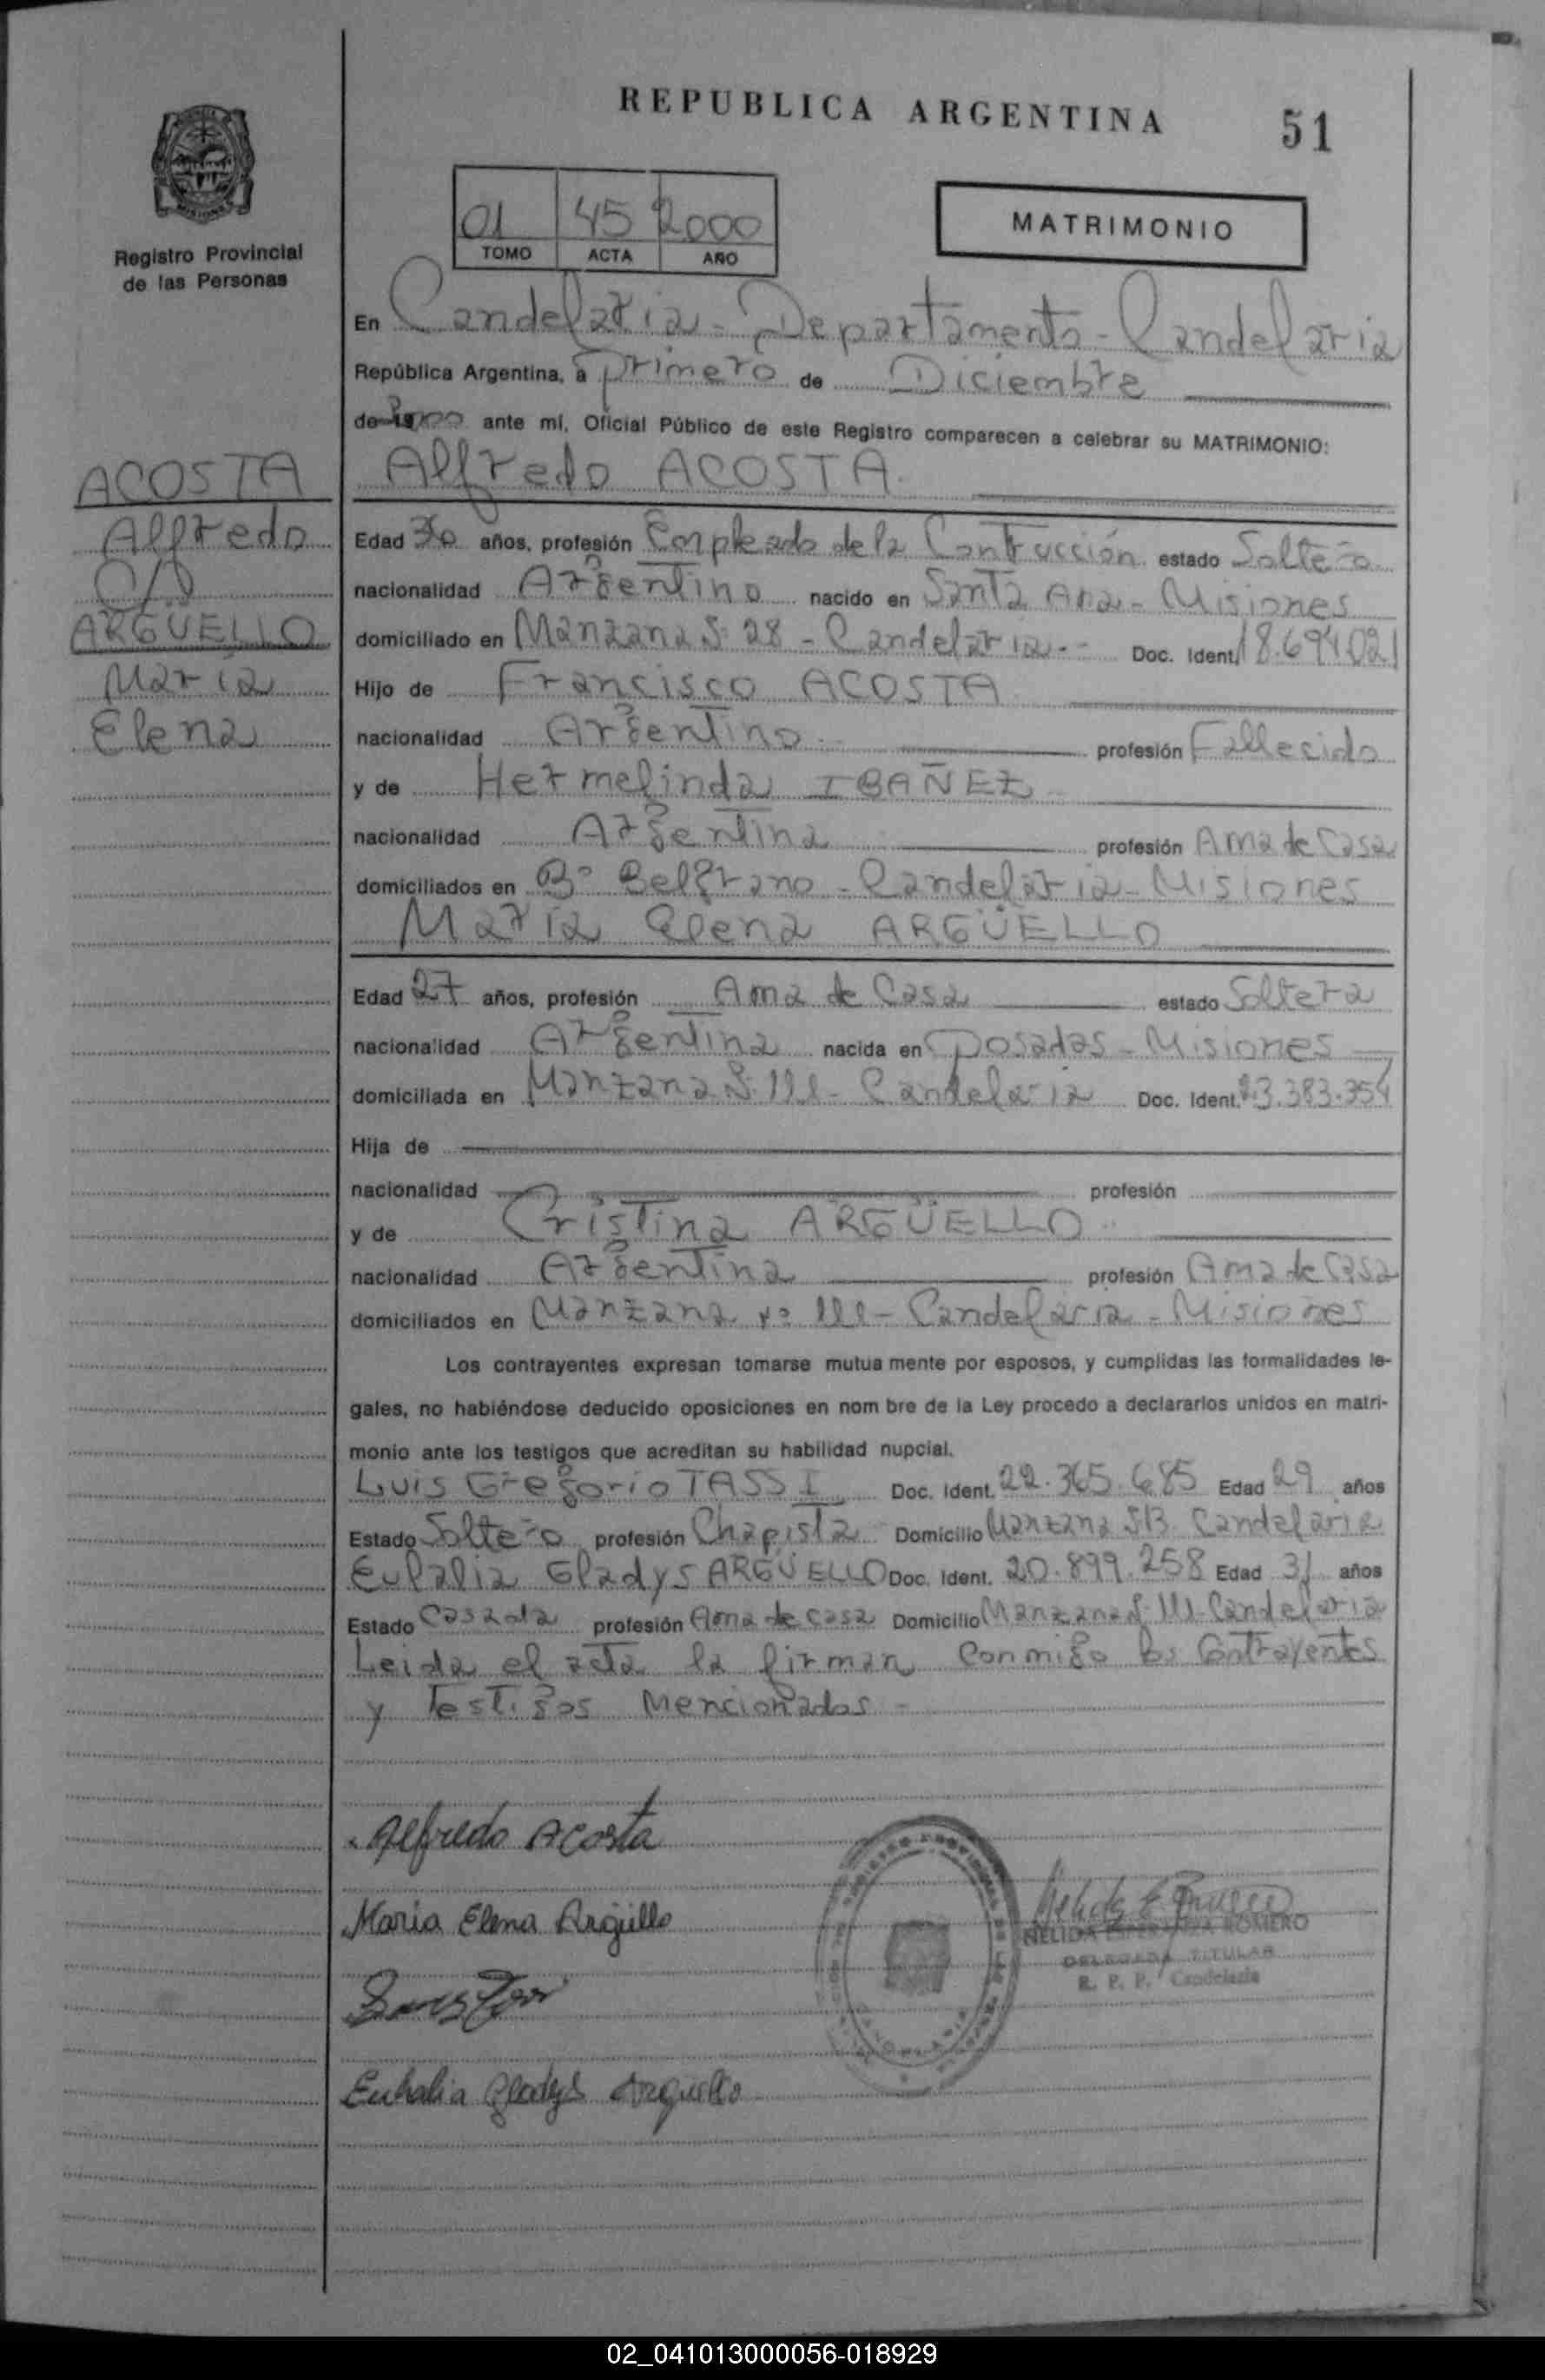 REPUBLICA ARGENTINA
51
MISIONES
Registro Provincial
de las Personas
01 45 2000
TOMO ACTA AÑO
MATRIMONIO
En Candelaria - Departamento - Candelaria
República Argentina, a primero de Diciembre
de ante mí, Oficial Público de este Registro comparecen a celebrar su MATRIMONIO:
ACOSTA
Alfredo
C/
ARGÜELLO
María
Elena
Alfredo ACOSTA
Edad años, profesión Empleado de la Contrucción estado Soltero
nacionalidad Argentino nacido en Santa Ana - Misiones
domiciliado en Manzana S: 28 - Candelaria - Doc. Ident. 18.694.021
Hijo de Francisco ACOSTA
nacionalidad Argentino profesión Fallecido
y de Hermelinda IBAÑEZ
nacionalidad Argentina profesión Ama de Casa
domiciliados en B° Belgrano - Candelaria - Misiones
María Elena ARGÜELLO
Edad 27 años, profesión Ama de Casa estado Soltera
nacionalidad Argentina nacida en Posadas - Misiones
domiciliada en Manzana 111 - Candelaria Doc. Ident. 23.383.354
Hija de
nacionalidad profesión
y de Cristina ARGÜELLO
nacionalidad Argentina profesión Ama de Casa
domiciliados en Manzana 111 - Candelaria - Misiones
Los contrayentes expresan tomarse mutua mente por esposos, y cumplidas las formalidades le-
gales, no habiéndose deducido oposiciones en nom bre de la Ley procedo a declararlos unidos en matri-
monio ante los testigos que acreditan su habilidad nupcial.
Luis Gregorio TASSI Doc. Ident. 22.365.685 Edad 29 años
Estado Soltero profesión Chapista Domicilio Manzana Candelaria
Eulalia Gladys ARGÜELLO Doc. Ident. 20.899.258 Edad 31 años
Estado Casada profesión Ama de casa Domicilio Manzana 111 - Candelaria
Leida el acta la firman conmigo los Contrayentes
y testigos Mencionados -
Alfredo Acosta
Maria Elena Argüello
Eulalia Gladys Arguello
NELIDA ESPERANZA ROMERO
DELEGADA TITULAR
R. P. P. Candelaria
02_041013000056-018929